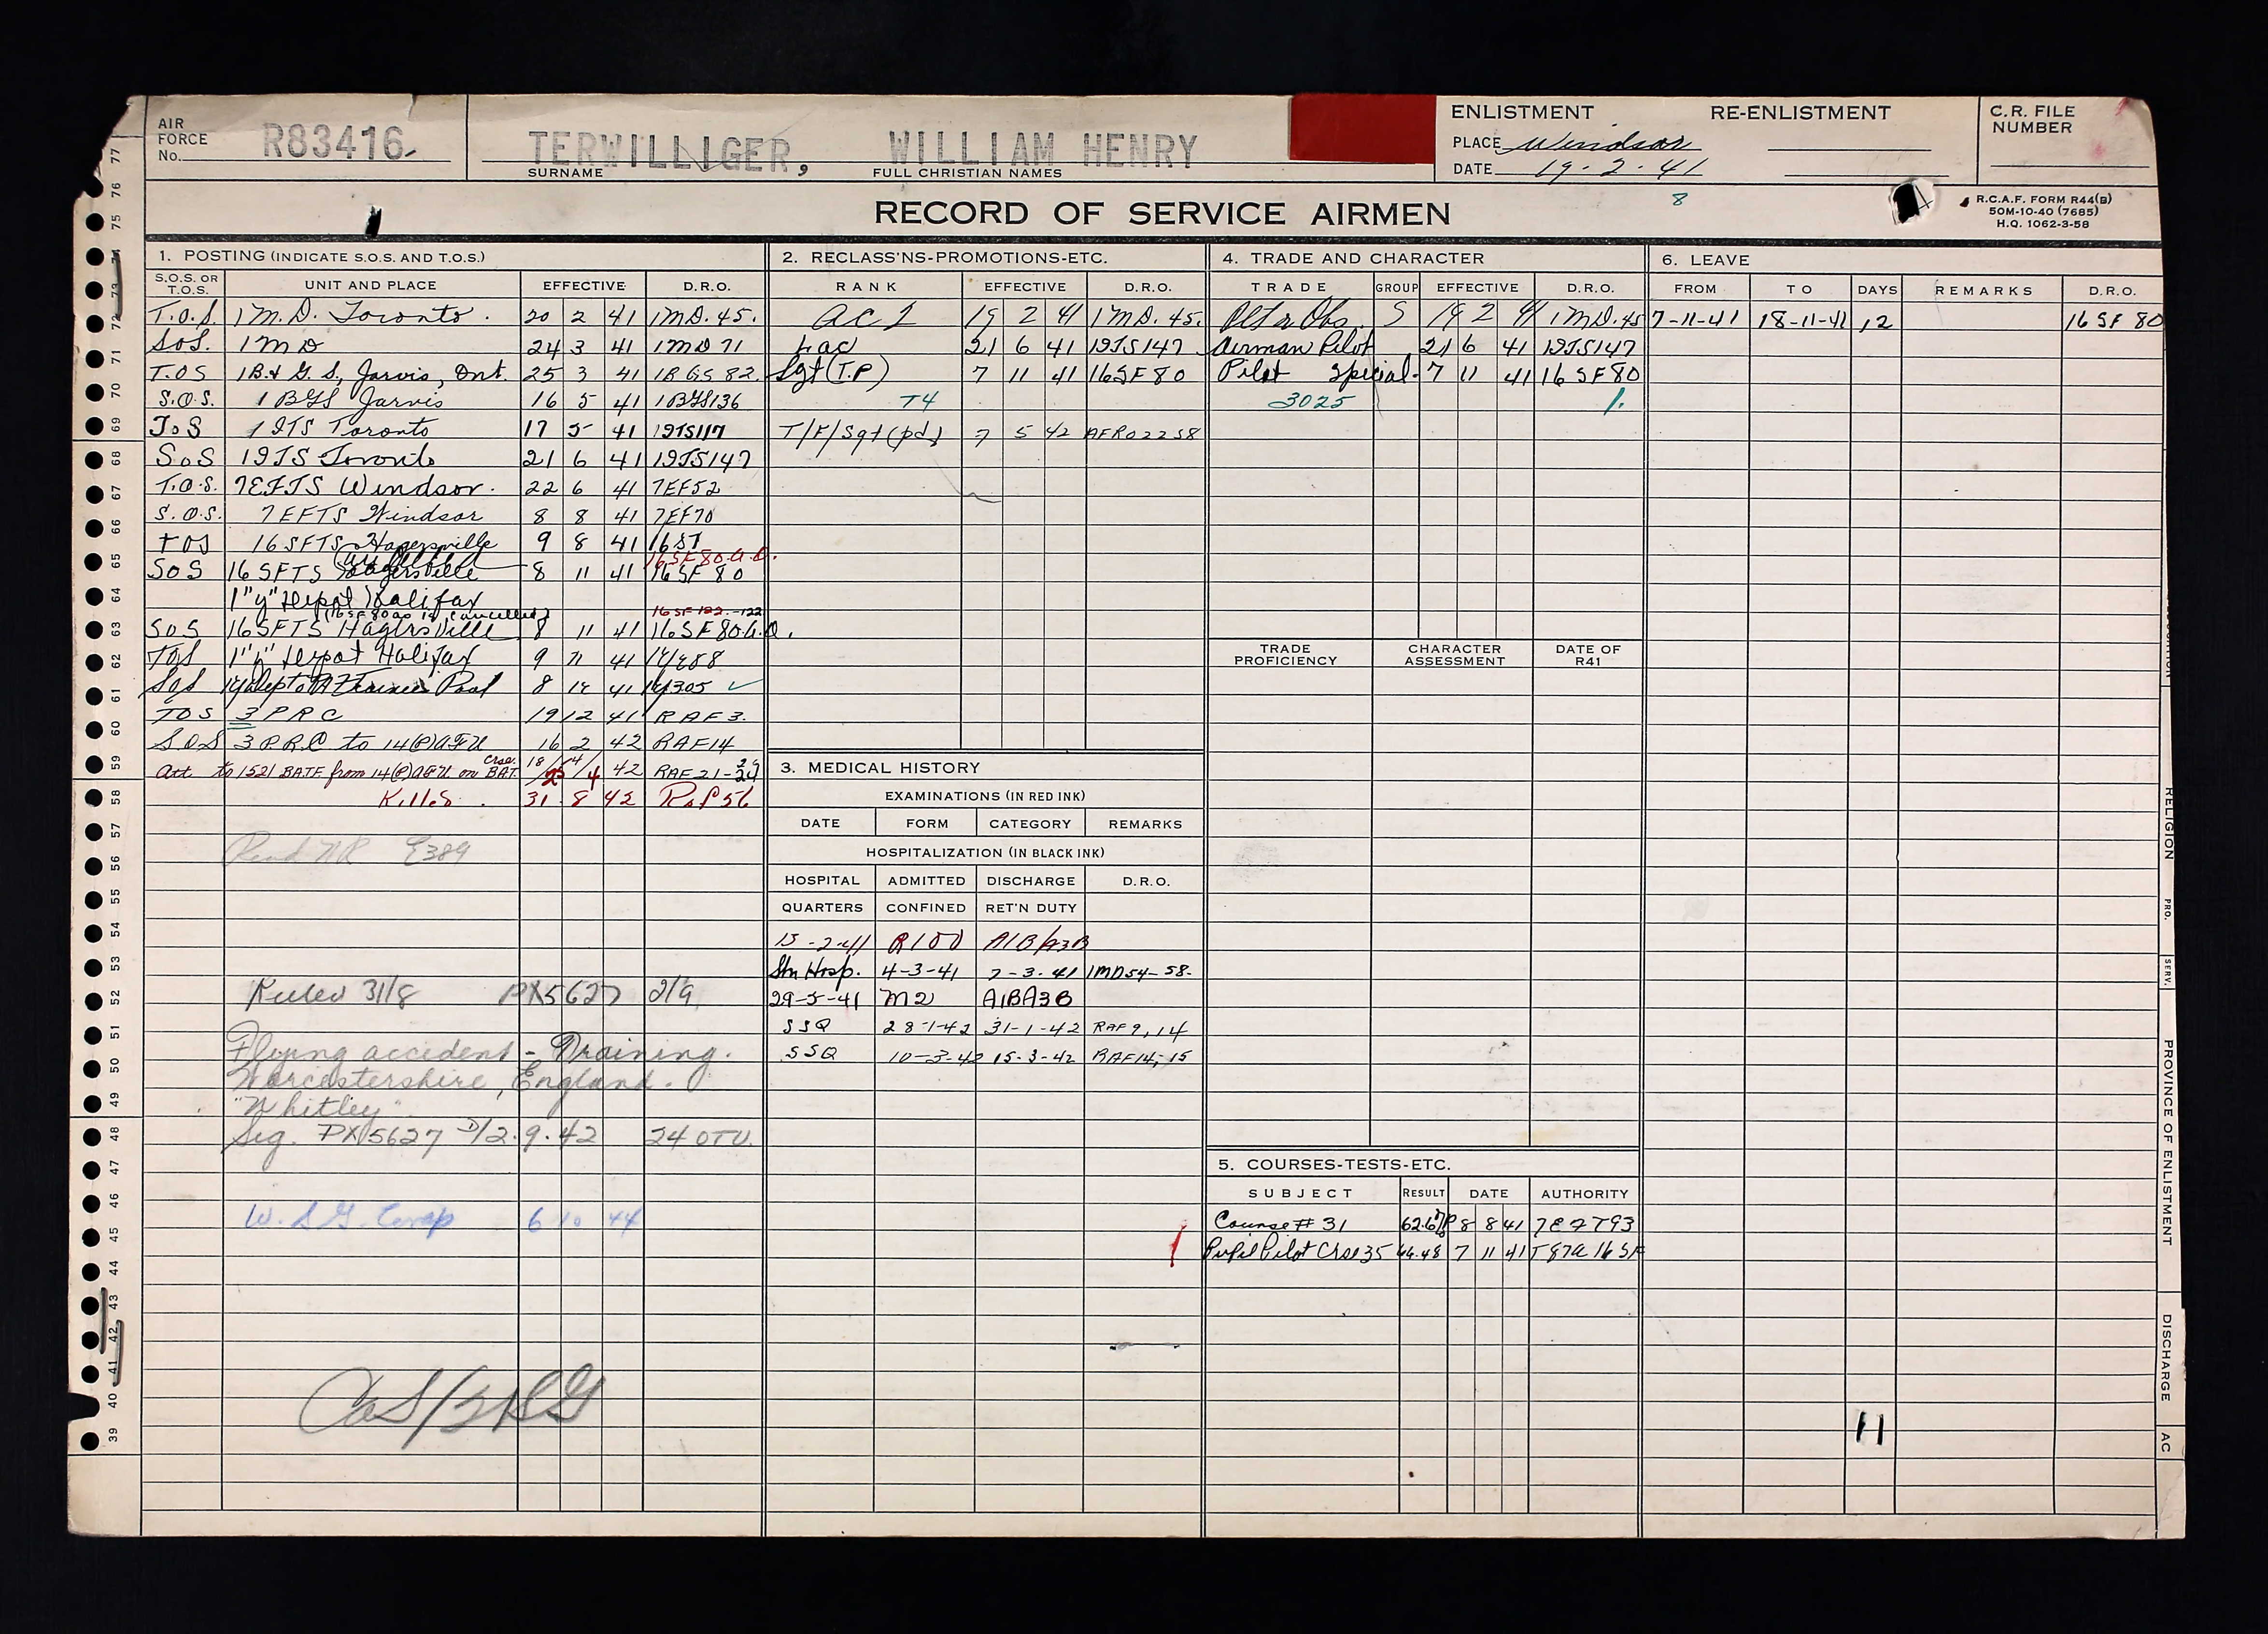 AIR FORCE No. R83416
TERWILLIGER, WILLIAM HENRY
SURNAME FULL CHRISTIAN NAMES
ENLISTMENT RE-ENLISTMENT
PLACE Windsor
DATE 19-2-41
C.R. FILE NUMBER
8
RECORD OF SERVICE AIRMEN
R.C.A.F. FORM R44(B)
50M-10-40 (7685)
H.Q. 1062-3-58
1. POSTING (INDICATE S.O.S. AND T.O.S.)
S.O.S. OR T.O.S. UNIT AND PLACE EFFECTIVE D.R.O.
T.O.S. 1 M.D. Toronto. 20 2 41 1MD.45.
SoS. 1 MD 24 3 41 1MD 71
T.OS 1B & G.S, Jarvis, Ont. 25 3 41 1BGS 82
S.O.S. 1 BGS Jarvis 16 5 41 1BGS136
ToS 1 ITS Toronto 17 5 41 1ITS117
SoS 1ITS Toronto 21 6 41 1ITS147
T.O.S. 7EFTS Windsor. 22 6 41 7EF52
S.O.S. 7 EFTS Windsor 8 8 41 7EF70
TOS 16 SFTS Hagersville 9 8 41 16ST
16SF80.A.O.
SOS 16 SFTS Hagersville 8 11 41 16 SF 80
1"Y" Depot Halifax
(16SF80 as is cancelled) 16SF122.-122
SOS 16 SFTS Hagersville 8 11 41 16SF80.A.O.
TOS 1"Y" Depot Halifax 9 11 41 1Y288
SOS 1Y Dep to Trainee Pool 8 12 41 1Y305
TOS 3 PRC 19 12 41 RAF 3.
SOS 3 PRC to 14(P)AFU 16 2 42 RAF14
Att to 1521 BATF from 14(P)AFU on BAT. Crse. 18/4/ 25/4 42 RAF 21-24 29
Killed. 31 8 42 RAF 56
E389
Killed 31/8 PX5627 2/9
Flying accident - Training.
Worcestershire, England.
"Whitley"
Sig. PX5627 D/2.9.42 24 OTU.
W.S.G. Comp 6 10 44
Cas/BSG
2. RECLASS'NS-PROMOTIONS-ETC.
RANK EFFECTIVE D.R.O.
AC2 19 2 41 1MD.45.
Lac 21 6 41 1ITS147
Sgt (T.P) 7 11 41 16SF80
T4
T/F/Sgt (pd) 7 5 42 AFRO2258
3. MEDICAL HISTORY
EXAMINATIONS (IN RED INK)
DATE FORM CATEGORY REMARKS
HOSPITALIZATION (IN BLACK INK)
HOSPITAL ADMITTED DISCHARGE D.R.O.
QUARTERS CONFINED RET'N DUTY
15-2-41 R100 A1B/A3B
Stn Hosp. 4-3-41 7-3-41 1MD54-58.
29-5-41 M2 A1BA3B
SSQ 28-1-42 31-1-42 RAF9,14
SSQ 10-3-42 15-3-42 RAF14,15
4. TRADE AND CHARACTER
TRADE GROUP EFFECTIVE D.R.O.
Plt or Obs. S 19 2 41 1MD.45
Airman Pilot 21 6 41 1ITS147
Pilot Special. 7 11 41 16 SF80
3025 1.
TRADE PROFICIENCY CHARACTER ASSESSMENT DATE OF R41
5. COURSES-TESTS-ETC.
SUBJECT RESULT DATE AUTHORITY
Course # 31 8 8 41 7EFT93
Pupil Pilot Crse 35 66.48 7 11 41 T97A 16 SF
6. LEAVE
FROM TO DAYS REMARKS D.R.O.
7-11-41 18-11-41 12 16 SF 80
11
77
76
75
74
73
72
71
70
69
68
67
66
65
64
63
62
61
60
59
58
57
56
55
54
53
52
51
50
49
48
47
46
45
44
43
42
41
40
39
RELIGION
PRO.
SERV.
PROVINCE OF ENLISTMENT
DISCHARGE
AC